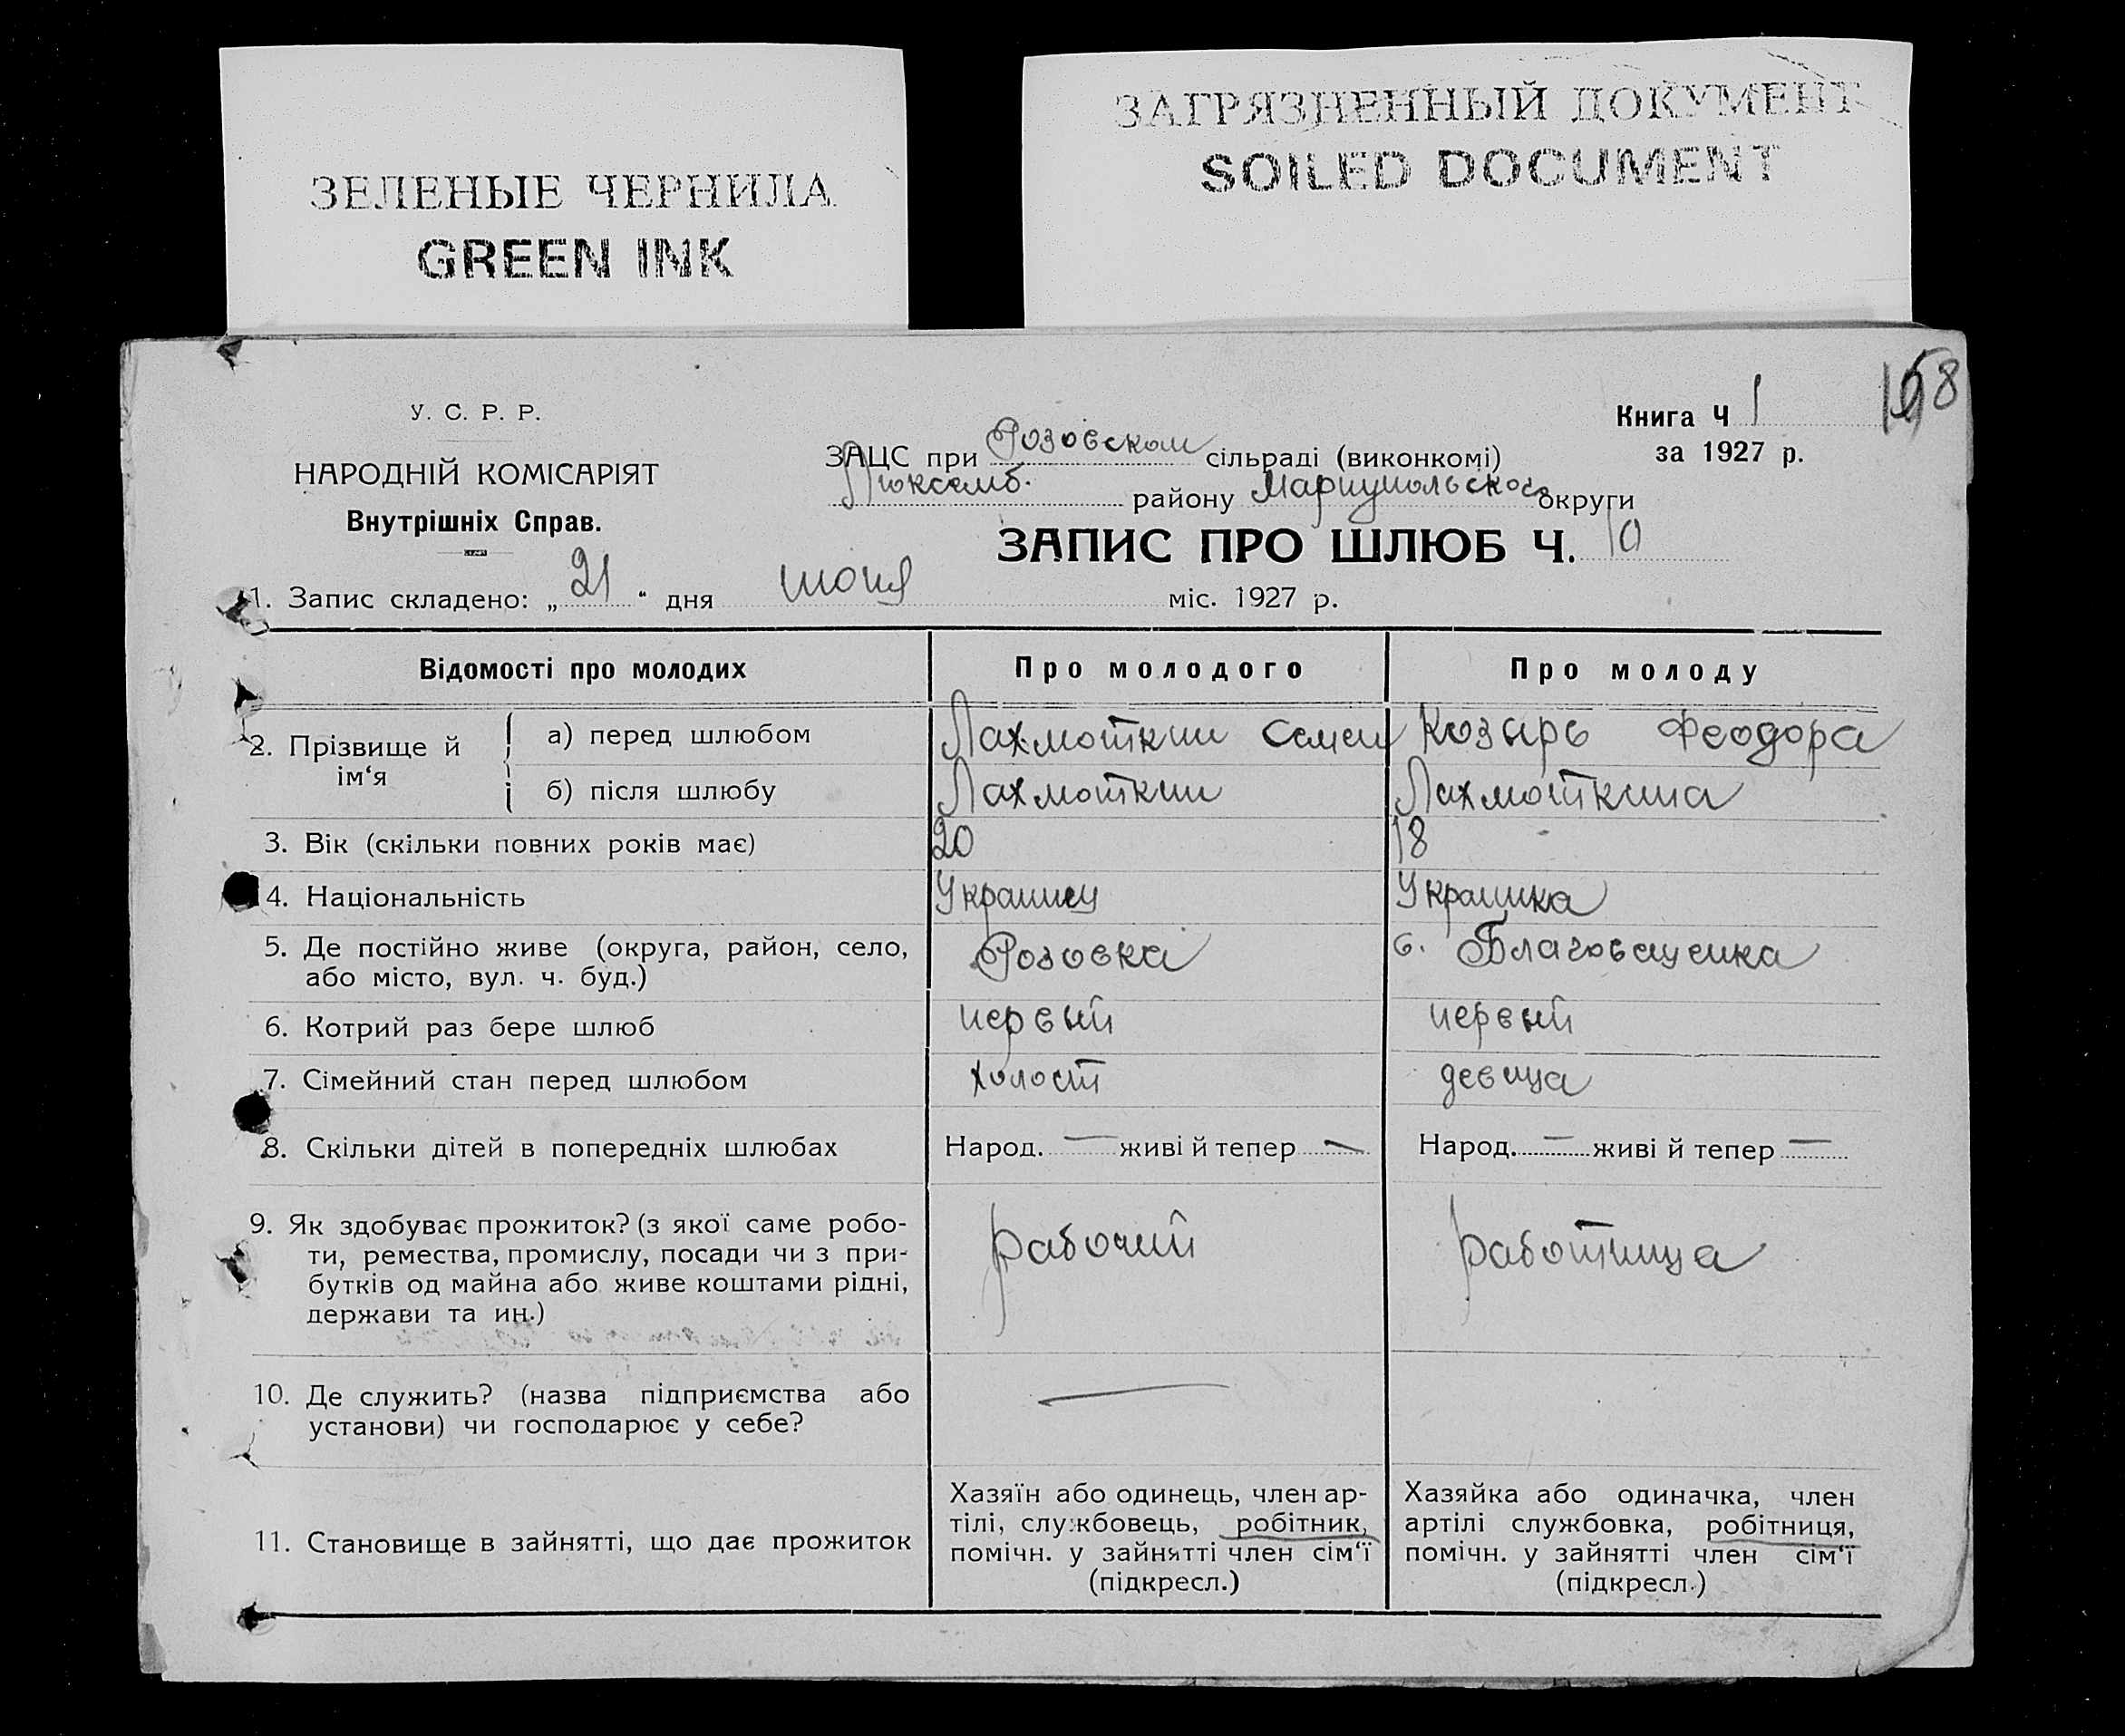 ЗЕЛЕНЫЕ ЧЕРНИЛА
GREEN INK
ЗАГРЯЗНЕННЫЙ ДОКУМЕНТ
SOILED DOCUMENT
У. С. Р. Р.
НАРОДНІЙ КОМІСАРІЯТ
Внутрішніх Справ.
Книга Ч 1
за 1927 р.
ЗАЦС при Розовском сільраді (виконкомі)
Люксемб. району Мариупольского округи
ЗАПИС ПРО ШЛЮБ Ч. 10
1. Запис складено: „ 21 “ дня июня міс. 1927 р.
Відомості про молодих Про молодого Про молоду
2. Прізвище й ім‘я
а) перед шлюбом Лахмоткин Семен Козырь Феодора
б) після шлюбу Лахмоткин Лахмоткина
3. Вік (скільки повних років має) 20 18
4. Національність Украинец Украинка
5. Де постійно живе (округа, район, село,
або місто, вул. ч. буд.) Розовка с. Благовещенка
6. Котрий раз бере шлюб первый первый
7. Сімейний стан перед шлюбом холост девица
8. Скільки дітей в попередніх шлюбах Народ. — живі й тепер — Народ. — живі й тепер —
9. Як здобуває прожиток? (з якої саме робо-
ти, ремества, промислу, посади чи з при-
бутків од майна або живе коштами рідні,
держави та ин.) рабочий работница
10. Де служить? (назва підприємства або
установи) чи господарює у себе? —
11. Становище в зайнятті, що дає прожиток
Хазяїн або одинець, член ар-
тілі, службовець, робітник,
помічн. у зайнятті член сім‘ї
(підкресл.)
Хазяйка або одиначка, член
артілі службовка, робітниця,
помічн. у зайнятті член сім‘ї
(підкресл.)